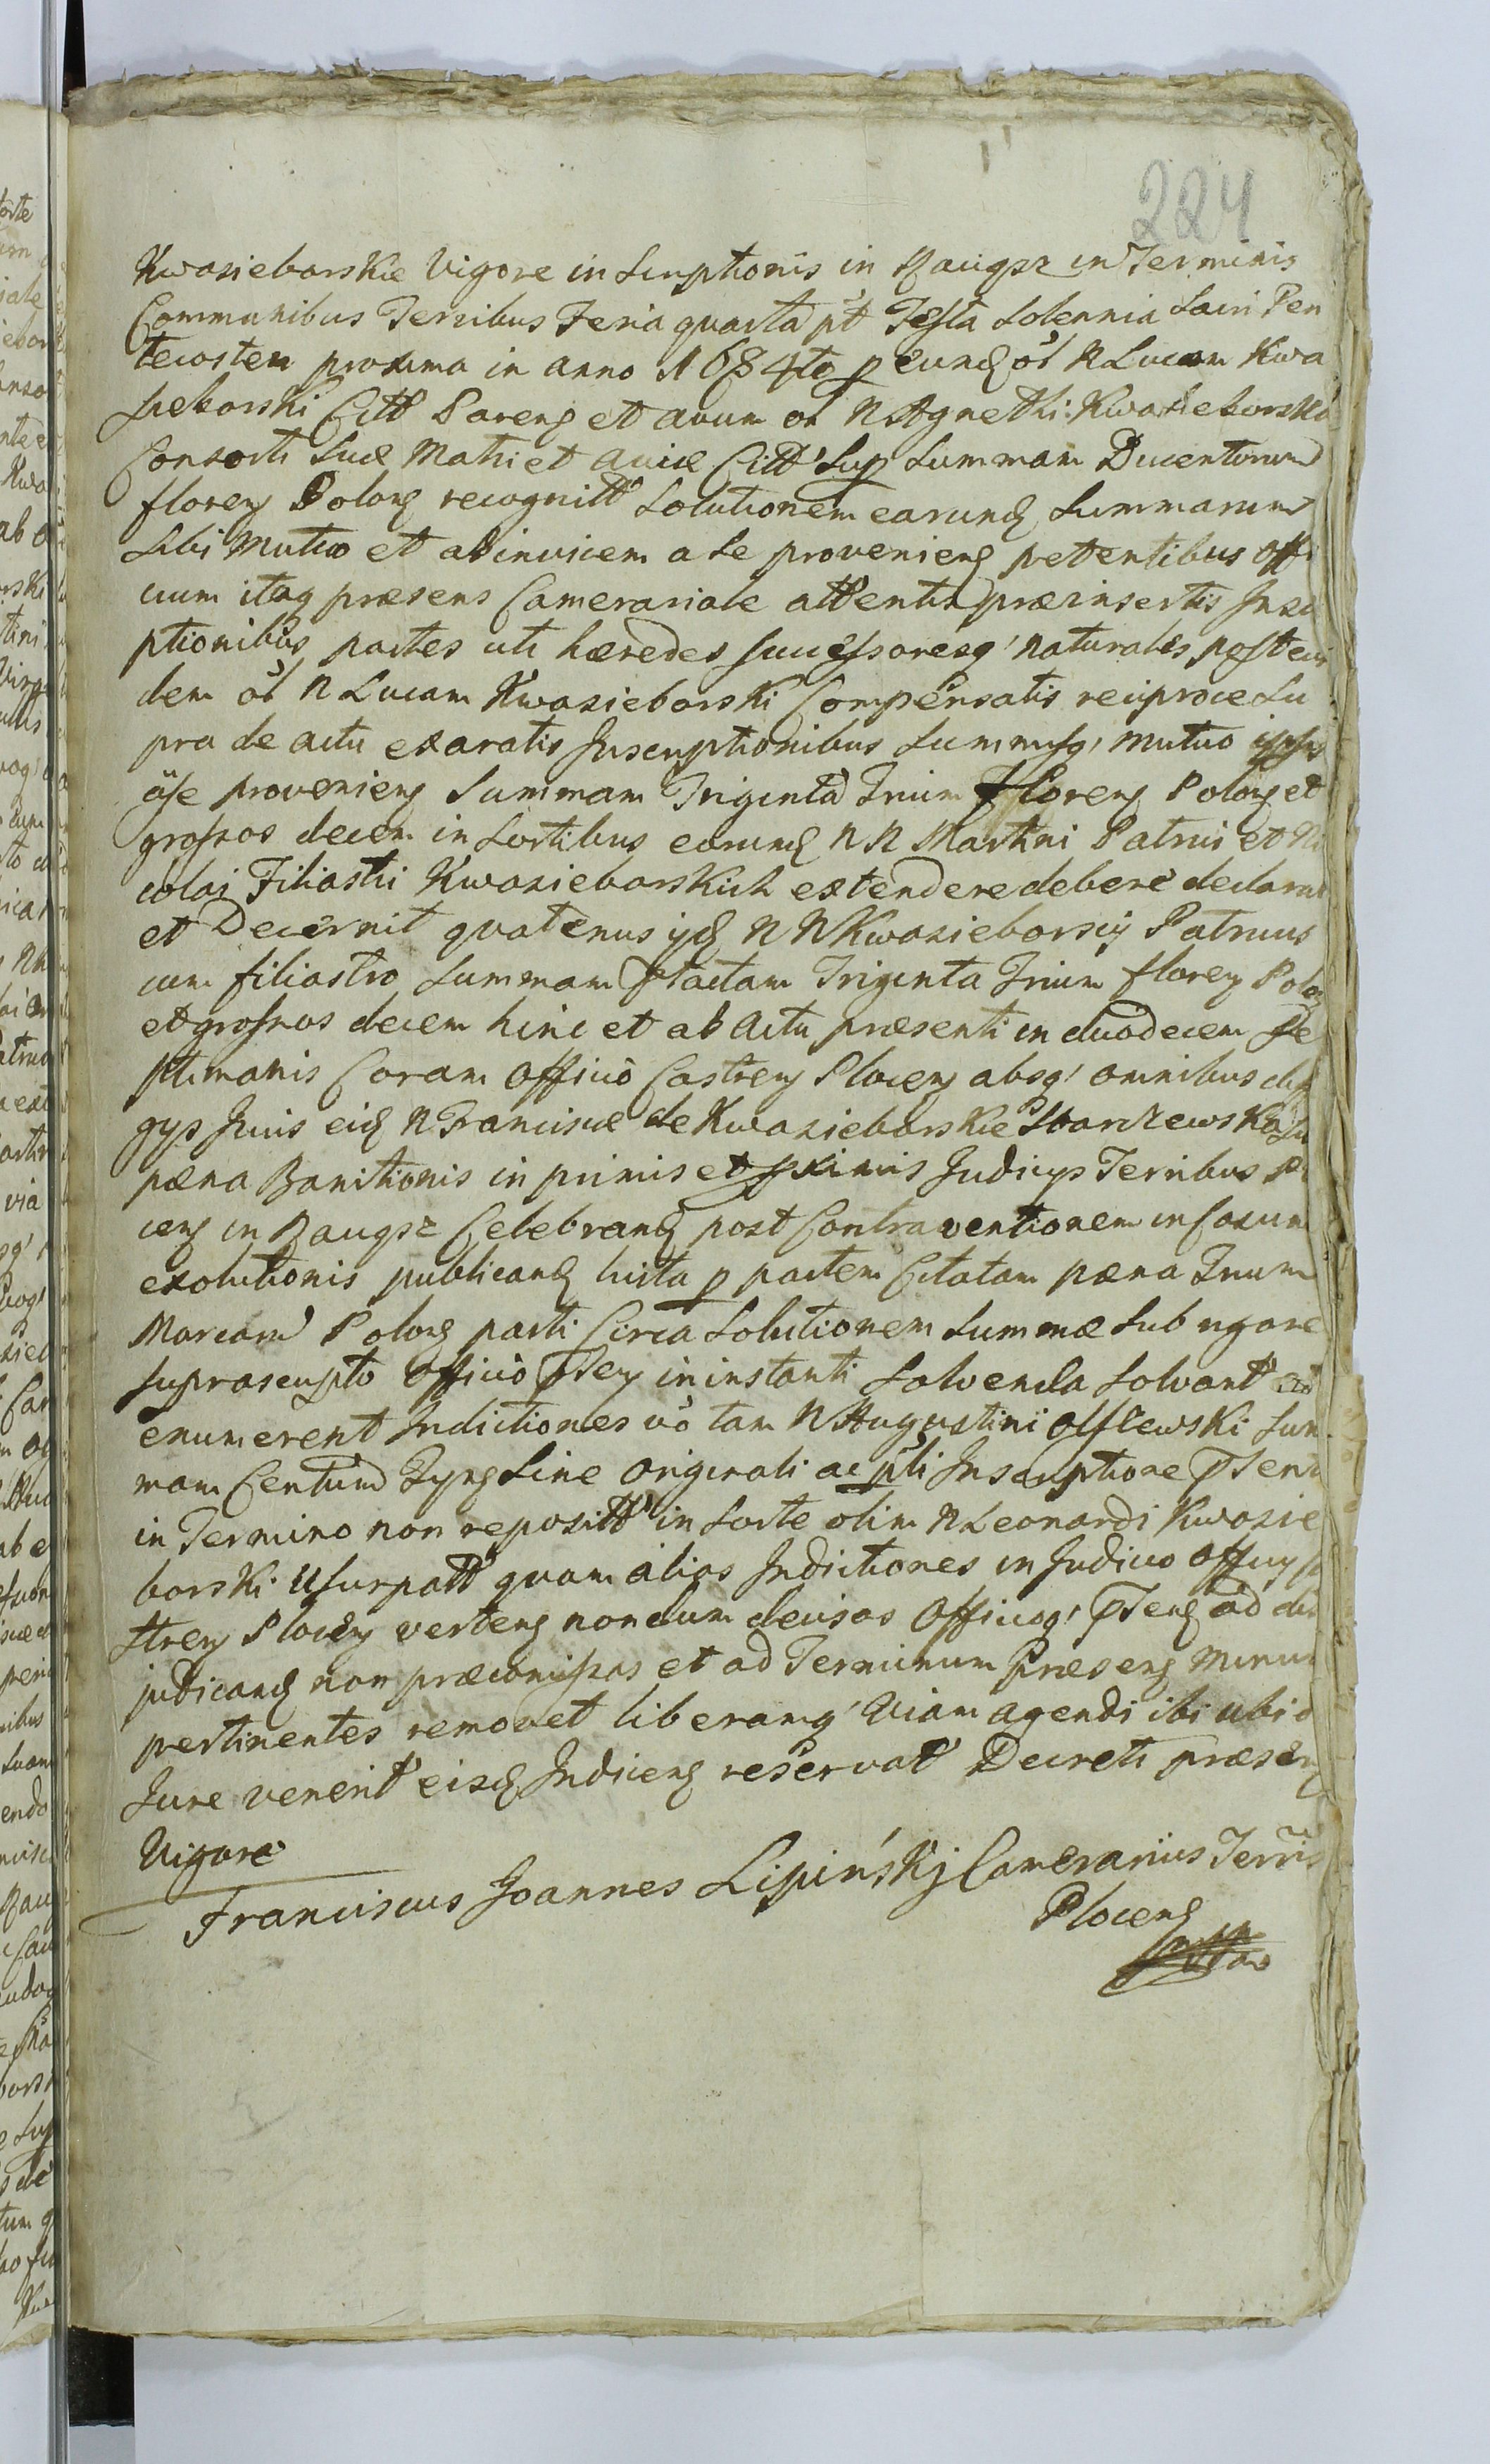 224
Kwasieborskie Vigore inscriptionis in Raigsz in Terminis
Communibus Terribus Feria quarta pt Festa Solennia Sacri Pen
tecosten proxima in anno 1684to p eund ol N Lucam Kwa
sieborski Citt Pareng et avum ol N Agnethi Kwasieborska
Consorti Suæ Matri et aviæ Citt Sup Summam Ducentorum
floreng Polong recognitt Solutionem earund Summarum
Sibi Mutuo et ab invicem a se provenieng petentibus Offi
cium itaq præsens Camerariale attentis præinsertis Inscri
ptionibus partes uti hæredes successoresq naturales post eun
dem ol N Lucam Kwasieborski Compensatis reciproce Su
pra de actu exaratis Inscriptionibus Summisq mutuo
a se provenieng Summam Triginta Trium Floreng Polong et
grossos decem in Sortibus eorund N N Martini Patrui et Ni
colai Filiastri Kwasieborskich extendere debere declarat
et Decernit quatenus ijd N N Kwasieborscy Patruus
cum filiastro Summam ptactam Triginta Trium floreng Polong
et grossos decem hinc et ab Actu præsenti in duodecem Se
ptimanis Coram Officio Castreng Ploceng absq omnibus
gys Juris eid N Franciscæ de Kwasieborskie Starzewska Su
pæna Banitionis in primis et pximis Judicys Terribus Plo
ceng in Raigsz Celebrand post Contraventionem in Casum
exolutionis publicand luita p partem Citatam pæna Trium
Marcarum Polong parti Circa Solutionem Summæ Sub rigore
suprascripto Officio pteng in instanti Solvenda Solvant et
enumerent Indictiones vo tam N Augustini Olszewski Sum
mam Centum Sine Originali ac pti Inscriptione ptenti
in Termino non repositt in Sorte olim N Leonardi Kwasie
borski Usurpatt quam alias Indictiones in Judicio Officy Ca
streng Ploceng verteng nondum decisas Officioq pteng ad di
judicand non præcomissas et ad Terminum Præseng Minus
pertinentes removet liberamq Viam agendi ibi ubi d
Jure venerit eisd Indiceng reservat Decreti præseng
Vigore
Franciscus Joannes Lipińskj Camerarius Terris
Ploceng